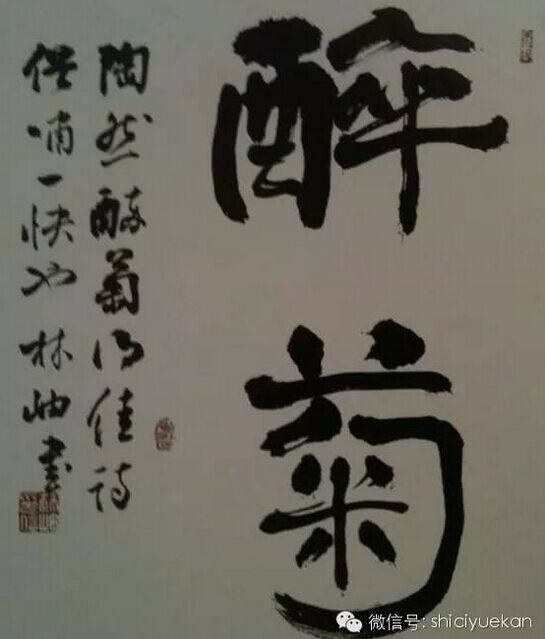 醉
菊
陶然醉菊得佳诗
供哺一快也 林岫书
微信号: shiciyuekan